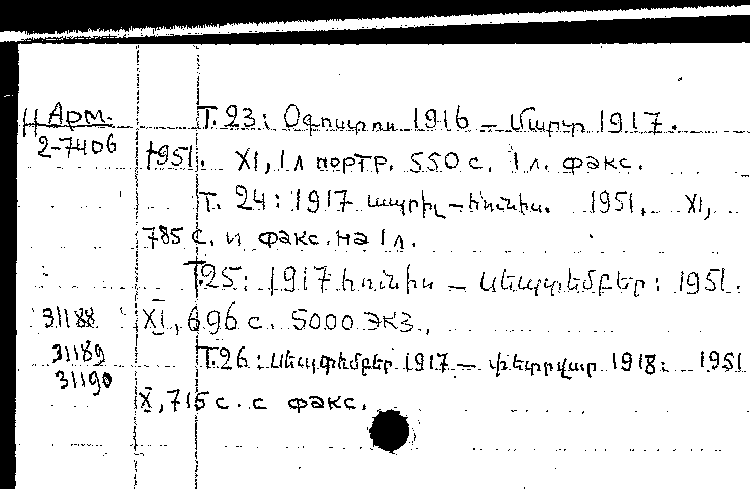 Н Арм.
2-7406
Т. 23: Օգոստոս 1916 – Մարտ 1917.
1951. XI, 1 л портр. 550 с. 1 л. факс.
Т. 24: 1917 ապրիլ – հունիս. 1951. XI,
785 с. и факс. на 1 л.
Т. 25: 1917 հունիս – սեպտեմբեր: 1951.
31188 XI, 696 с. 5000 экз.
31189 Т. 26: սեպտեմբեր 1917 – փետրվար 1918: 1951
31190
X, 715 с. с факс.